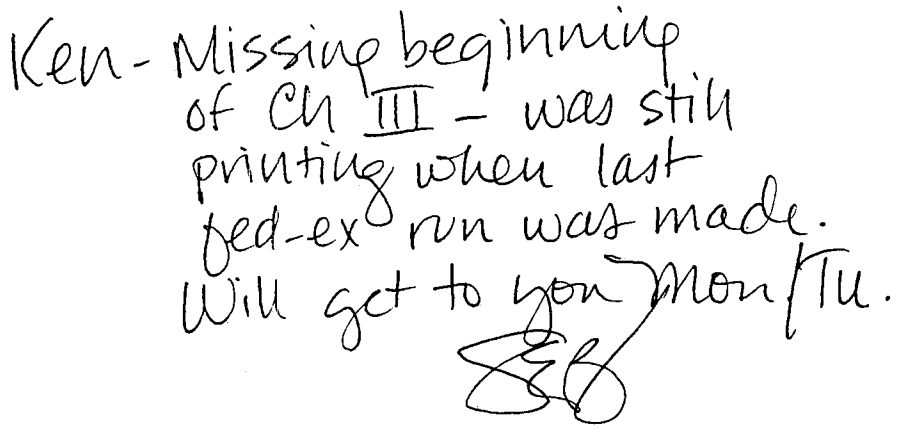 Ken - Missing beginning
of Ch III - was still
printing when last
fed-ex run was made.
Will get to you Mon/Tu.
SEB